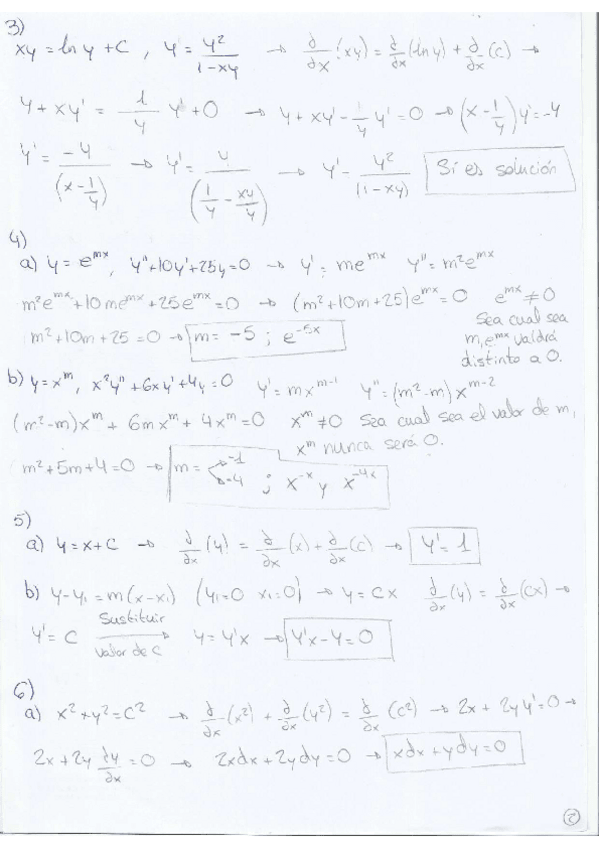 3)
xy = ln y + C , y' = y²/(1-xy) → ∂/∂x (xy) = ∂/∂x (ln y) + ∂/∂x (C) →
y + xy' = 1/y y' + 0 → y + xy' - 1/y y' = 0 → (x - 1/y) y' = -y
y' = -y/(x - 1/y) → y' = y/(1/y - xy/y) → y' - y²/(1-xy) Sí es solución
4)
a) y = e^mx, y'' + 10y' + 25y = 0 → y' = me^mx y'' = m²e^mx
m²e^mx + 10me^mx + 25e^mx = 0 → (m² + 10m + 25)e^mx = 0 e^mx ≠ 0
Sea cual sea
m² + 10m + 25 = 0 → m = -5 ; e^-5x m, e^mx valdrá
distinto a 0.
b) y = x^m, x²y'' + 6xy' + 4y = 0 y' = mx^m-1 y'' = (m²-m)x^m-2
(m²-m)x^m + 6mx^m + 4x^m = 0 x^m ≠ 0 Sea cual sea el valor de m,
x^m nunca será 0.
m² + 5m + 4 = 0 → m = -1 -4 ; x^-x y x^-4x
5)
a) y = x + C → ∂/∂x (y) = ∂/∂x (x) + ∂/∂x (C) → y' = 1
b) y - y₁ = m(x - x₁) (y₁=0 x₁=0) → y = Cx ∂/∂x (y) = ∂/∂x (Cx) →
y' = C Sustituir valor de C → y = y'x → y'x - y = 0
6)
a) x² + y² = C² → ∂/∂x (x²) + ∂/∂x (y²) = ∂/∂x (C²) → 2x + 2y y' = 0 →
2x + 2y ∂y/∂x = 0 → 2xdx + 2ydy = 0 → xdx + ydy = 0
2